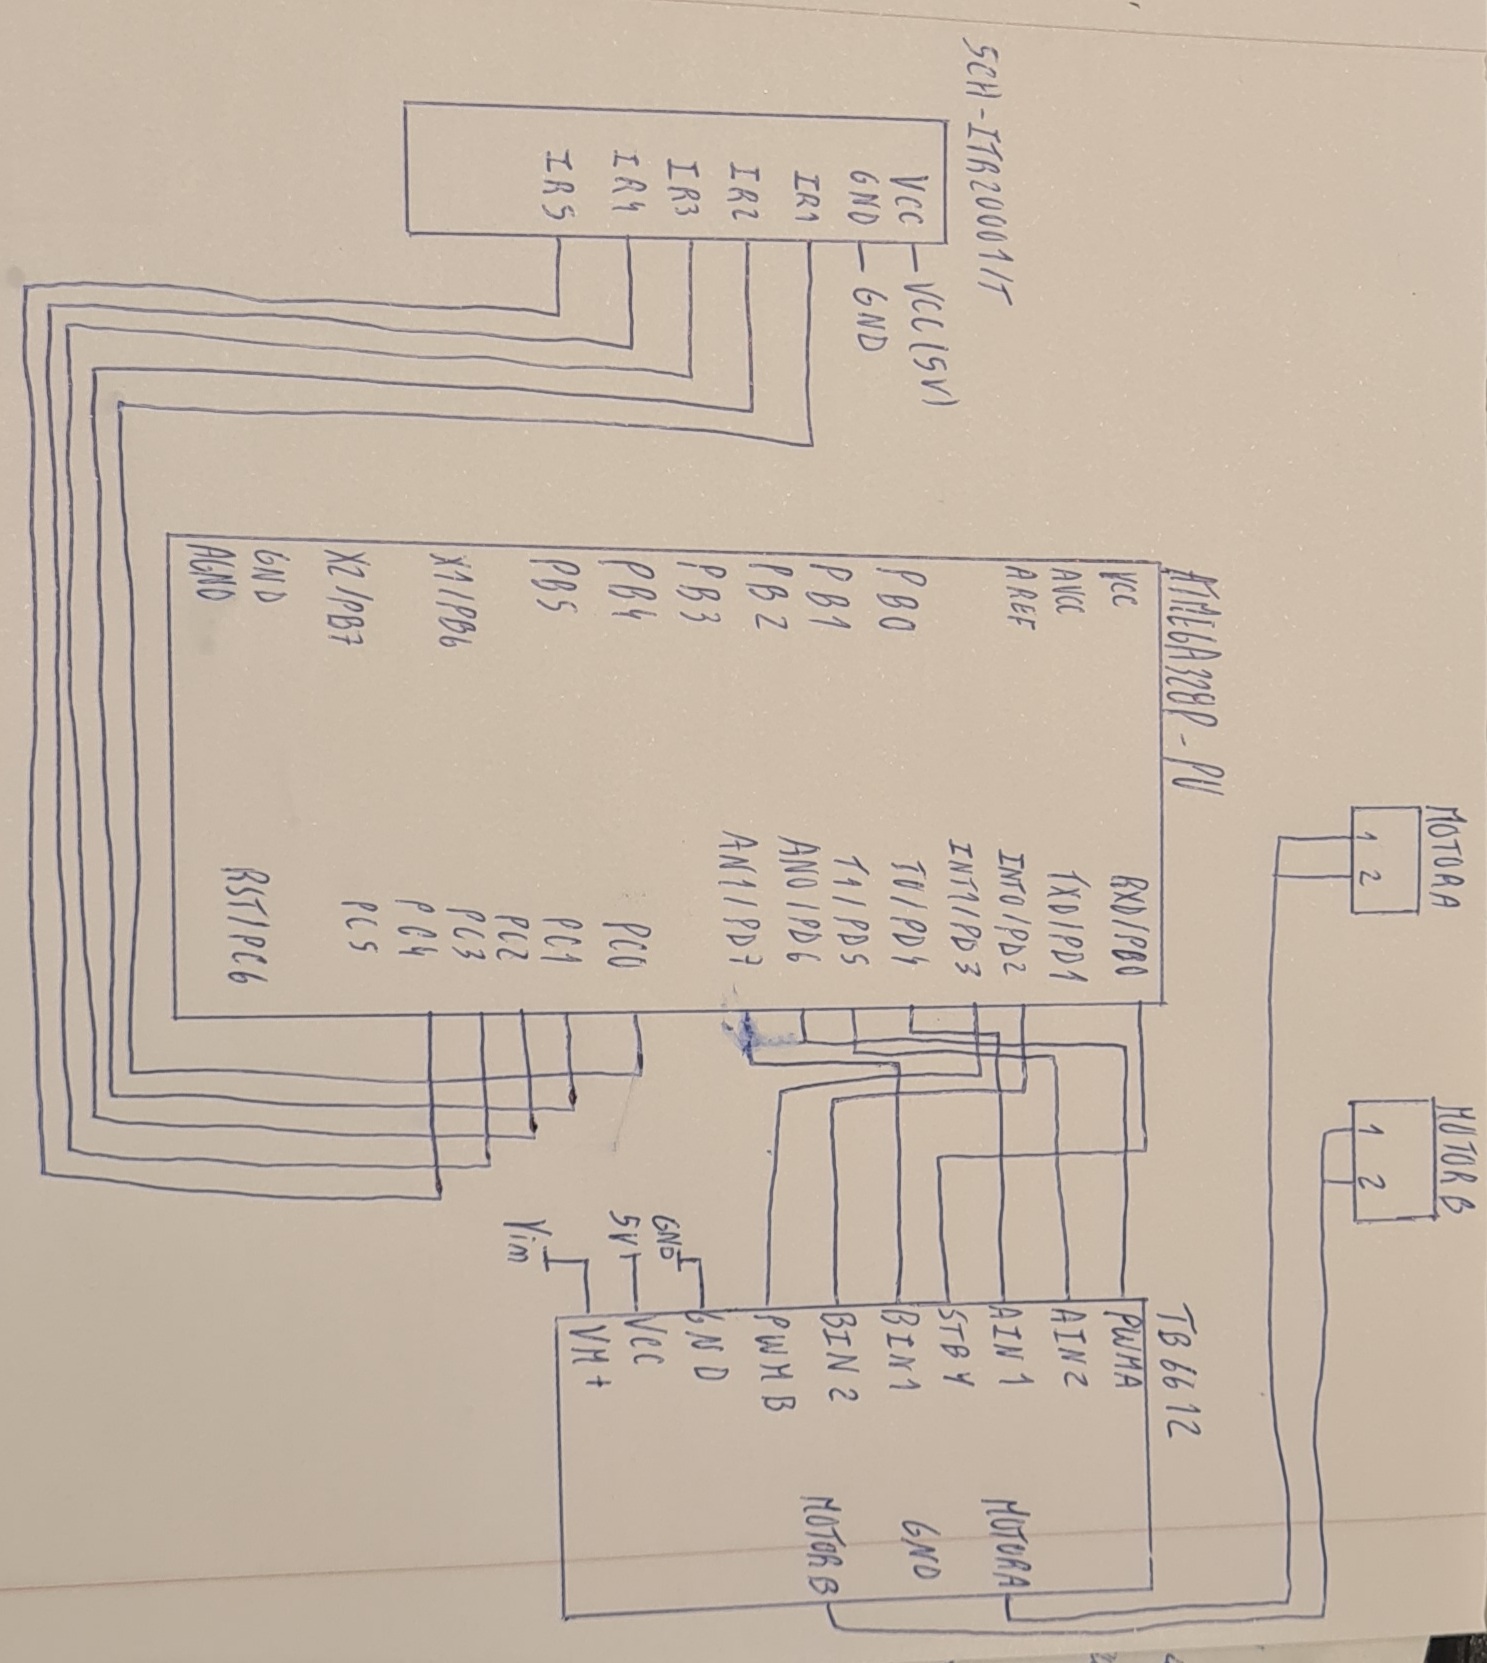 SCH-ITR20001/T
VCC
GND
IR1
IR2
IR3
IR4
IR5
VCC(5V)
GND
ATMEGA328P-PU
VCC
AVCC
AREF
PB0
PB1
PB2
PB3
PB4
PB5
X1/PB6
X2/PB7
GND
AGND
RXD/PB0
TXD/PD1
INT0/PD2
INT1/PD3
T0/PD4
T1/PD5
AN0/PD6
AN1/PD7
PC0
PC1
PC2
PC3
PC4
PC5
RST/PC6
MOTORA
1
2
MOTORB
1
2
GND
5V
Vim
TB6612
PWMA
AIN2
AIN1
STBY
BIN1
BIN2
PWMB
GND
VCC
VM+
MOTORA
GND
MOTORB